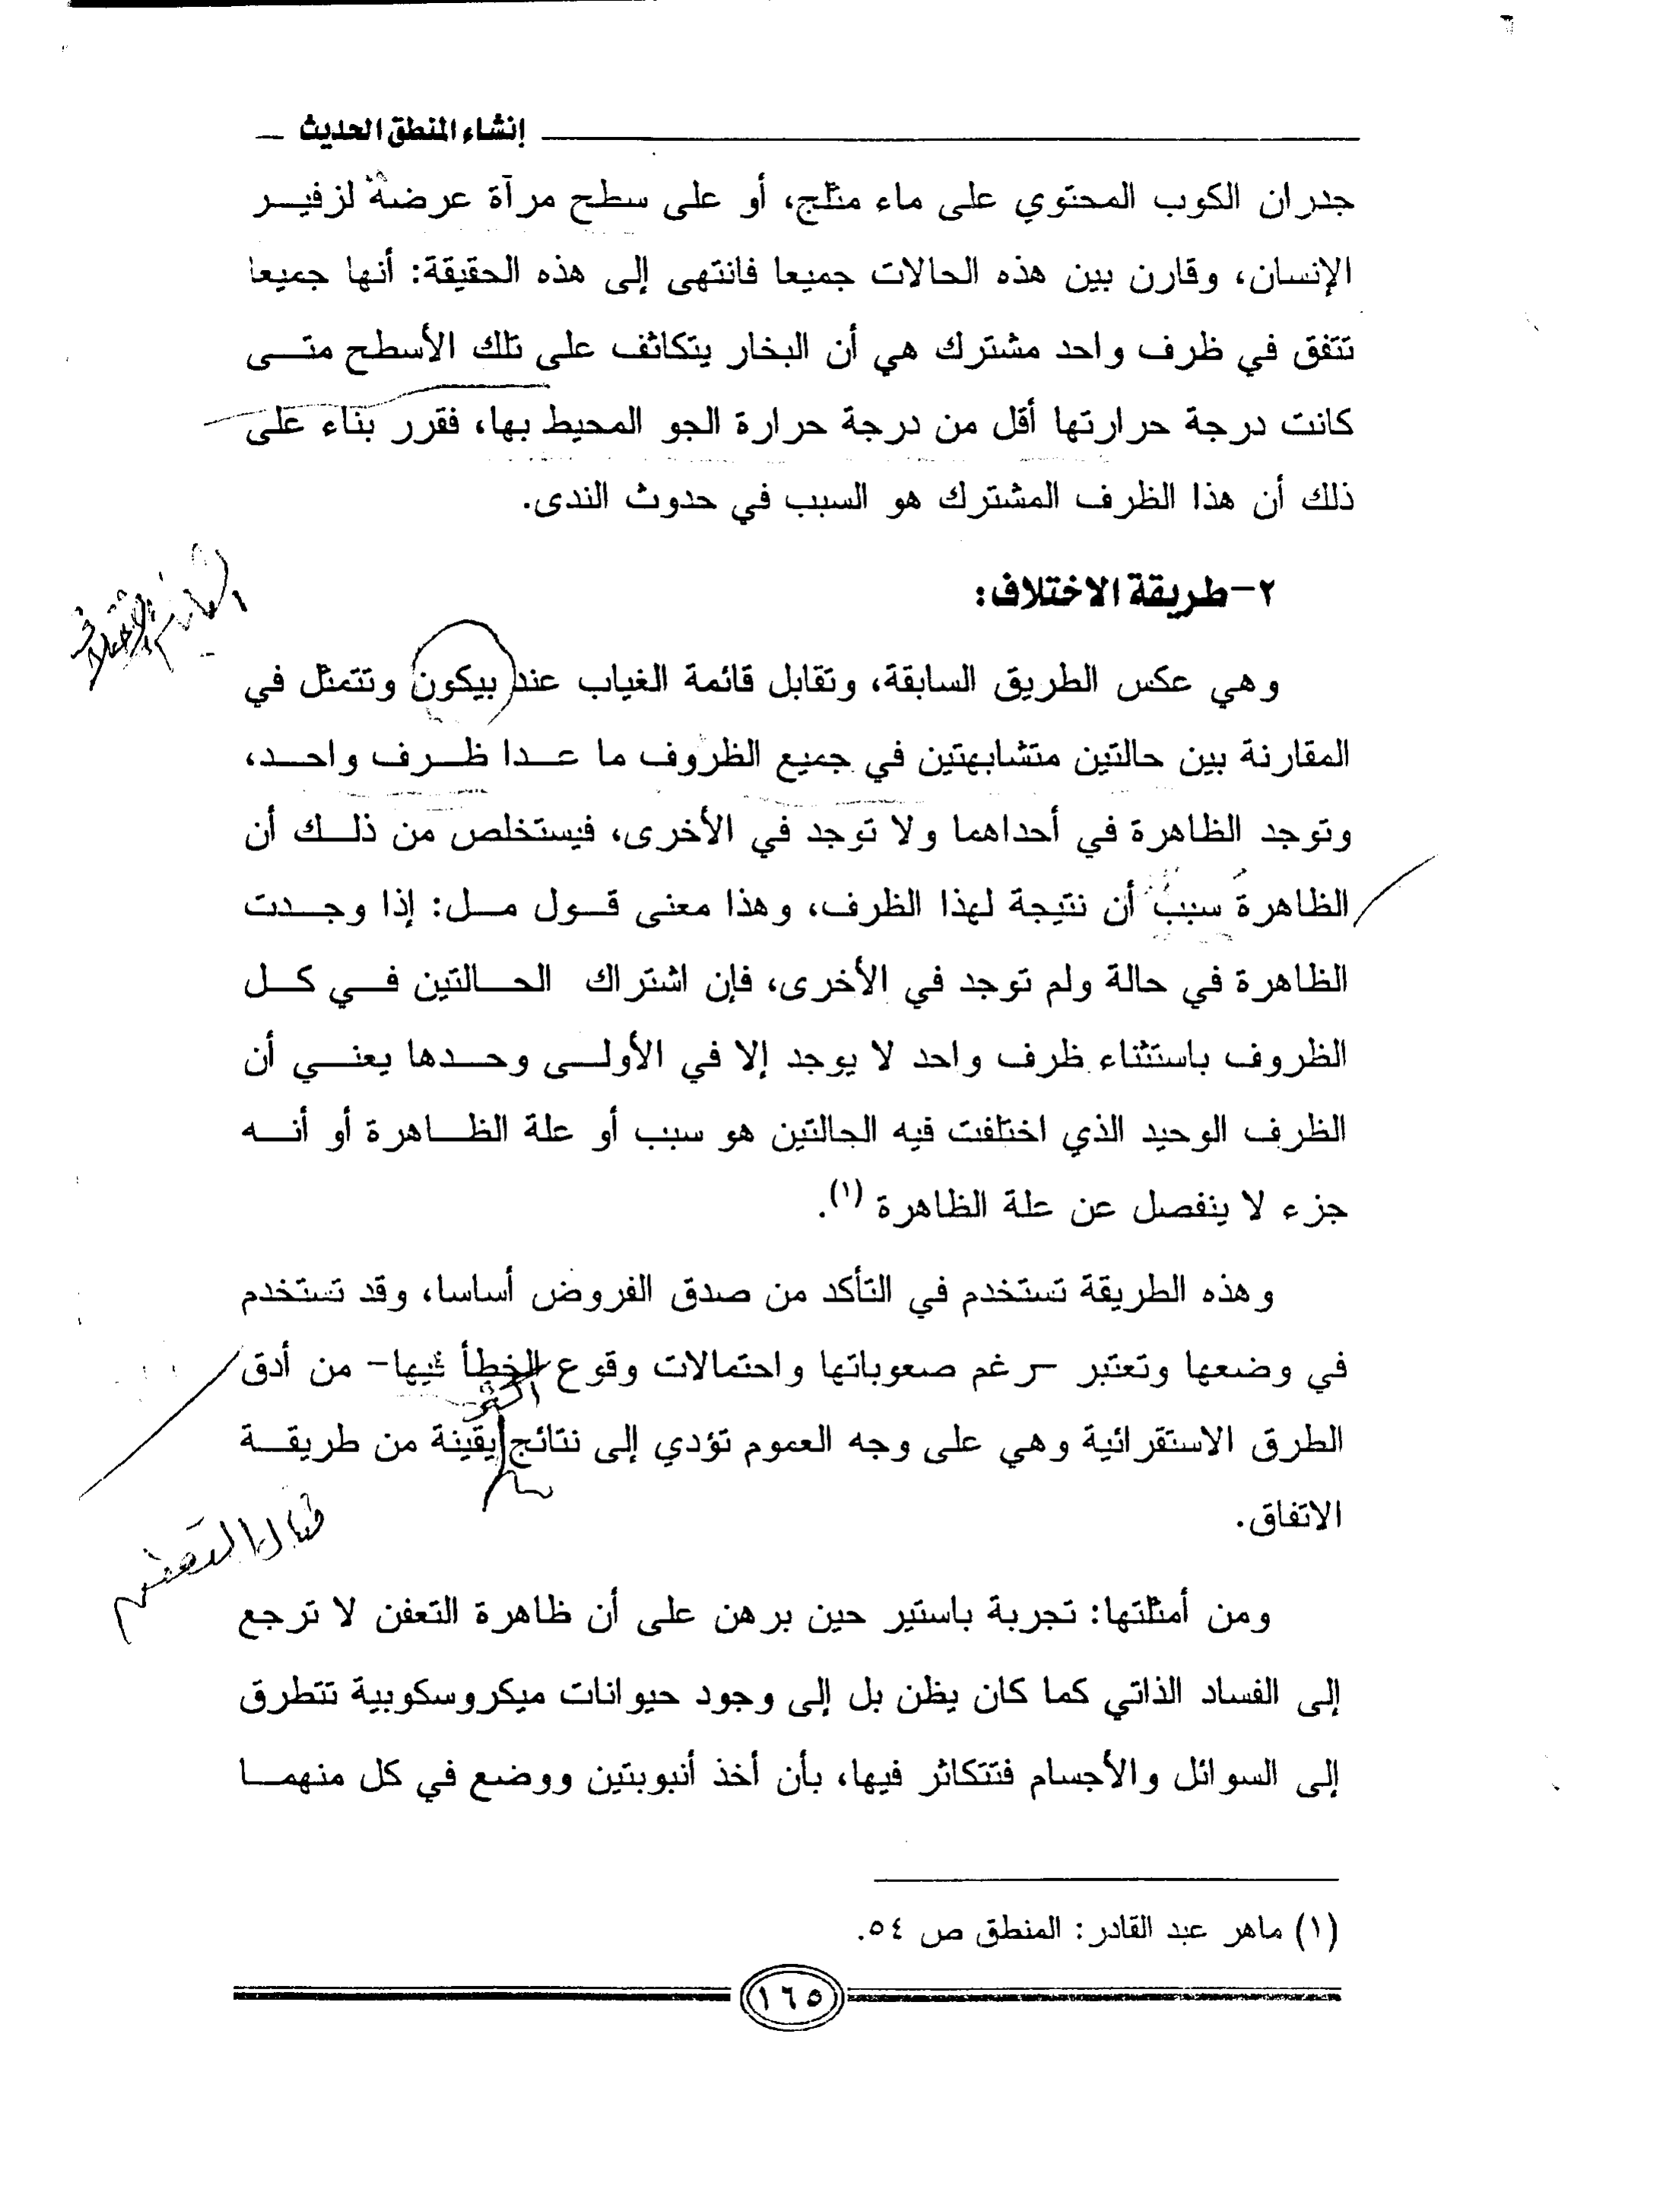 إنشاء المنطق الحديث
جدران الكوب المحتوي على ماء مثلج، أو على سطح مرآة عرضة لزفير
الإنسان، وقارن بين هذه الحالات جميعا فانتهى إلى هذه الحقيقة: أنها جميعا
تتفق في ظرف واحد مشترك هي أن البخار يتكاثف على تلك الأسطح متى
كانت درجة حرارتها أقل من درجة حرارة الجو المحيط بها، فقرر بناء على
ذلك أن هذا الظرف المشترك هو السبب في حدوث الندى.
٢- طريقة الاختلاف:
وهي عكس الطريق السابقة، وتقابل قائمة الغياب عند بيكون وتتمثل في
المقارنة بين حالتين متشابهتين في جميع الظروف ما عدا ظرف واحد،
وتوجد الظاهرة في أحداهما ولا توجد في الأخرى، فيستخلص من ذلك أن
الظاهرة سبب أن نتيجة لهذا الظرف، وهذا معنى قول مل: إذا وجدت
الظاهرة في حالة ولم توجد في الأخرى، فإن اشتراك الحالتين في كل
الظروف باستثناء ظرف واحد لا يوجد إلا في الأولى وحدها يعني أن
الظرف الوحيد الذي اختلفت فيه الحالتين هو سبب أو علة الظاهرة أو أنه
جزء لا ينفصل عن علة الظاهرة (١).
وهذه الطريقة تستخدم في التأكد من صدق الفروض أساسا، وقد تستخدم
في وضعها وتعتبر -رغم صعوباتها واحتمالات وقوع الخطأ فيها- من أدق
أكثر
الطرق الاستقرائية وهي على وجه العموم تؤدي إلى نتائج يقينة من طريقة
الاتفاق.
ومن أمثلتها: تجربة باستير حين برهن على أن ظاهرة التعفن لا ترجع
إلى الفساد الذاتي كما كان يظن بل إلى وجود حيوانات ميكروسكوبية تتطرق
إلى السوائل والأجسام فتتكاثر فيها، بأن أخذ أنبوبتين ووضع في كل منهما
(١) ماهر عبد القادر: المنطق ص ٥٤.
١٦٥